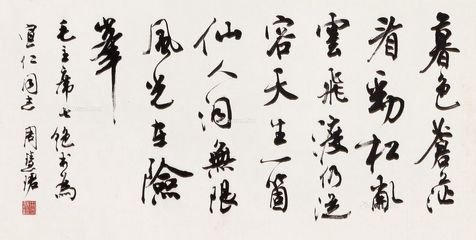 暮色蒼茫
看勁松亂
雲飛渡仍従
容天生一箇
仙人洞無限
風光在險
峯
毛主席七絕書為
宜仁同志 周慧珺